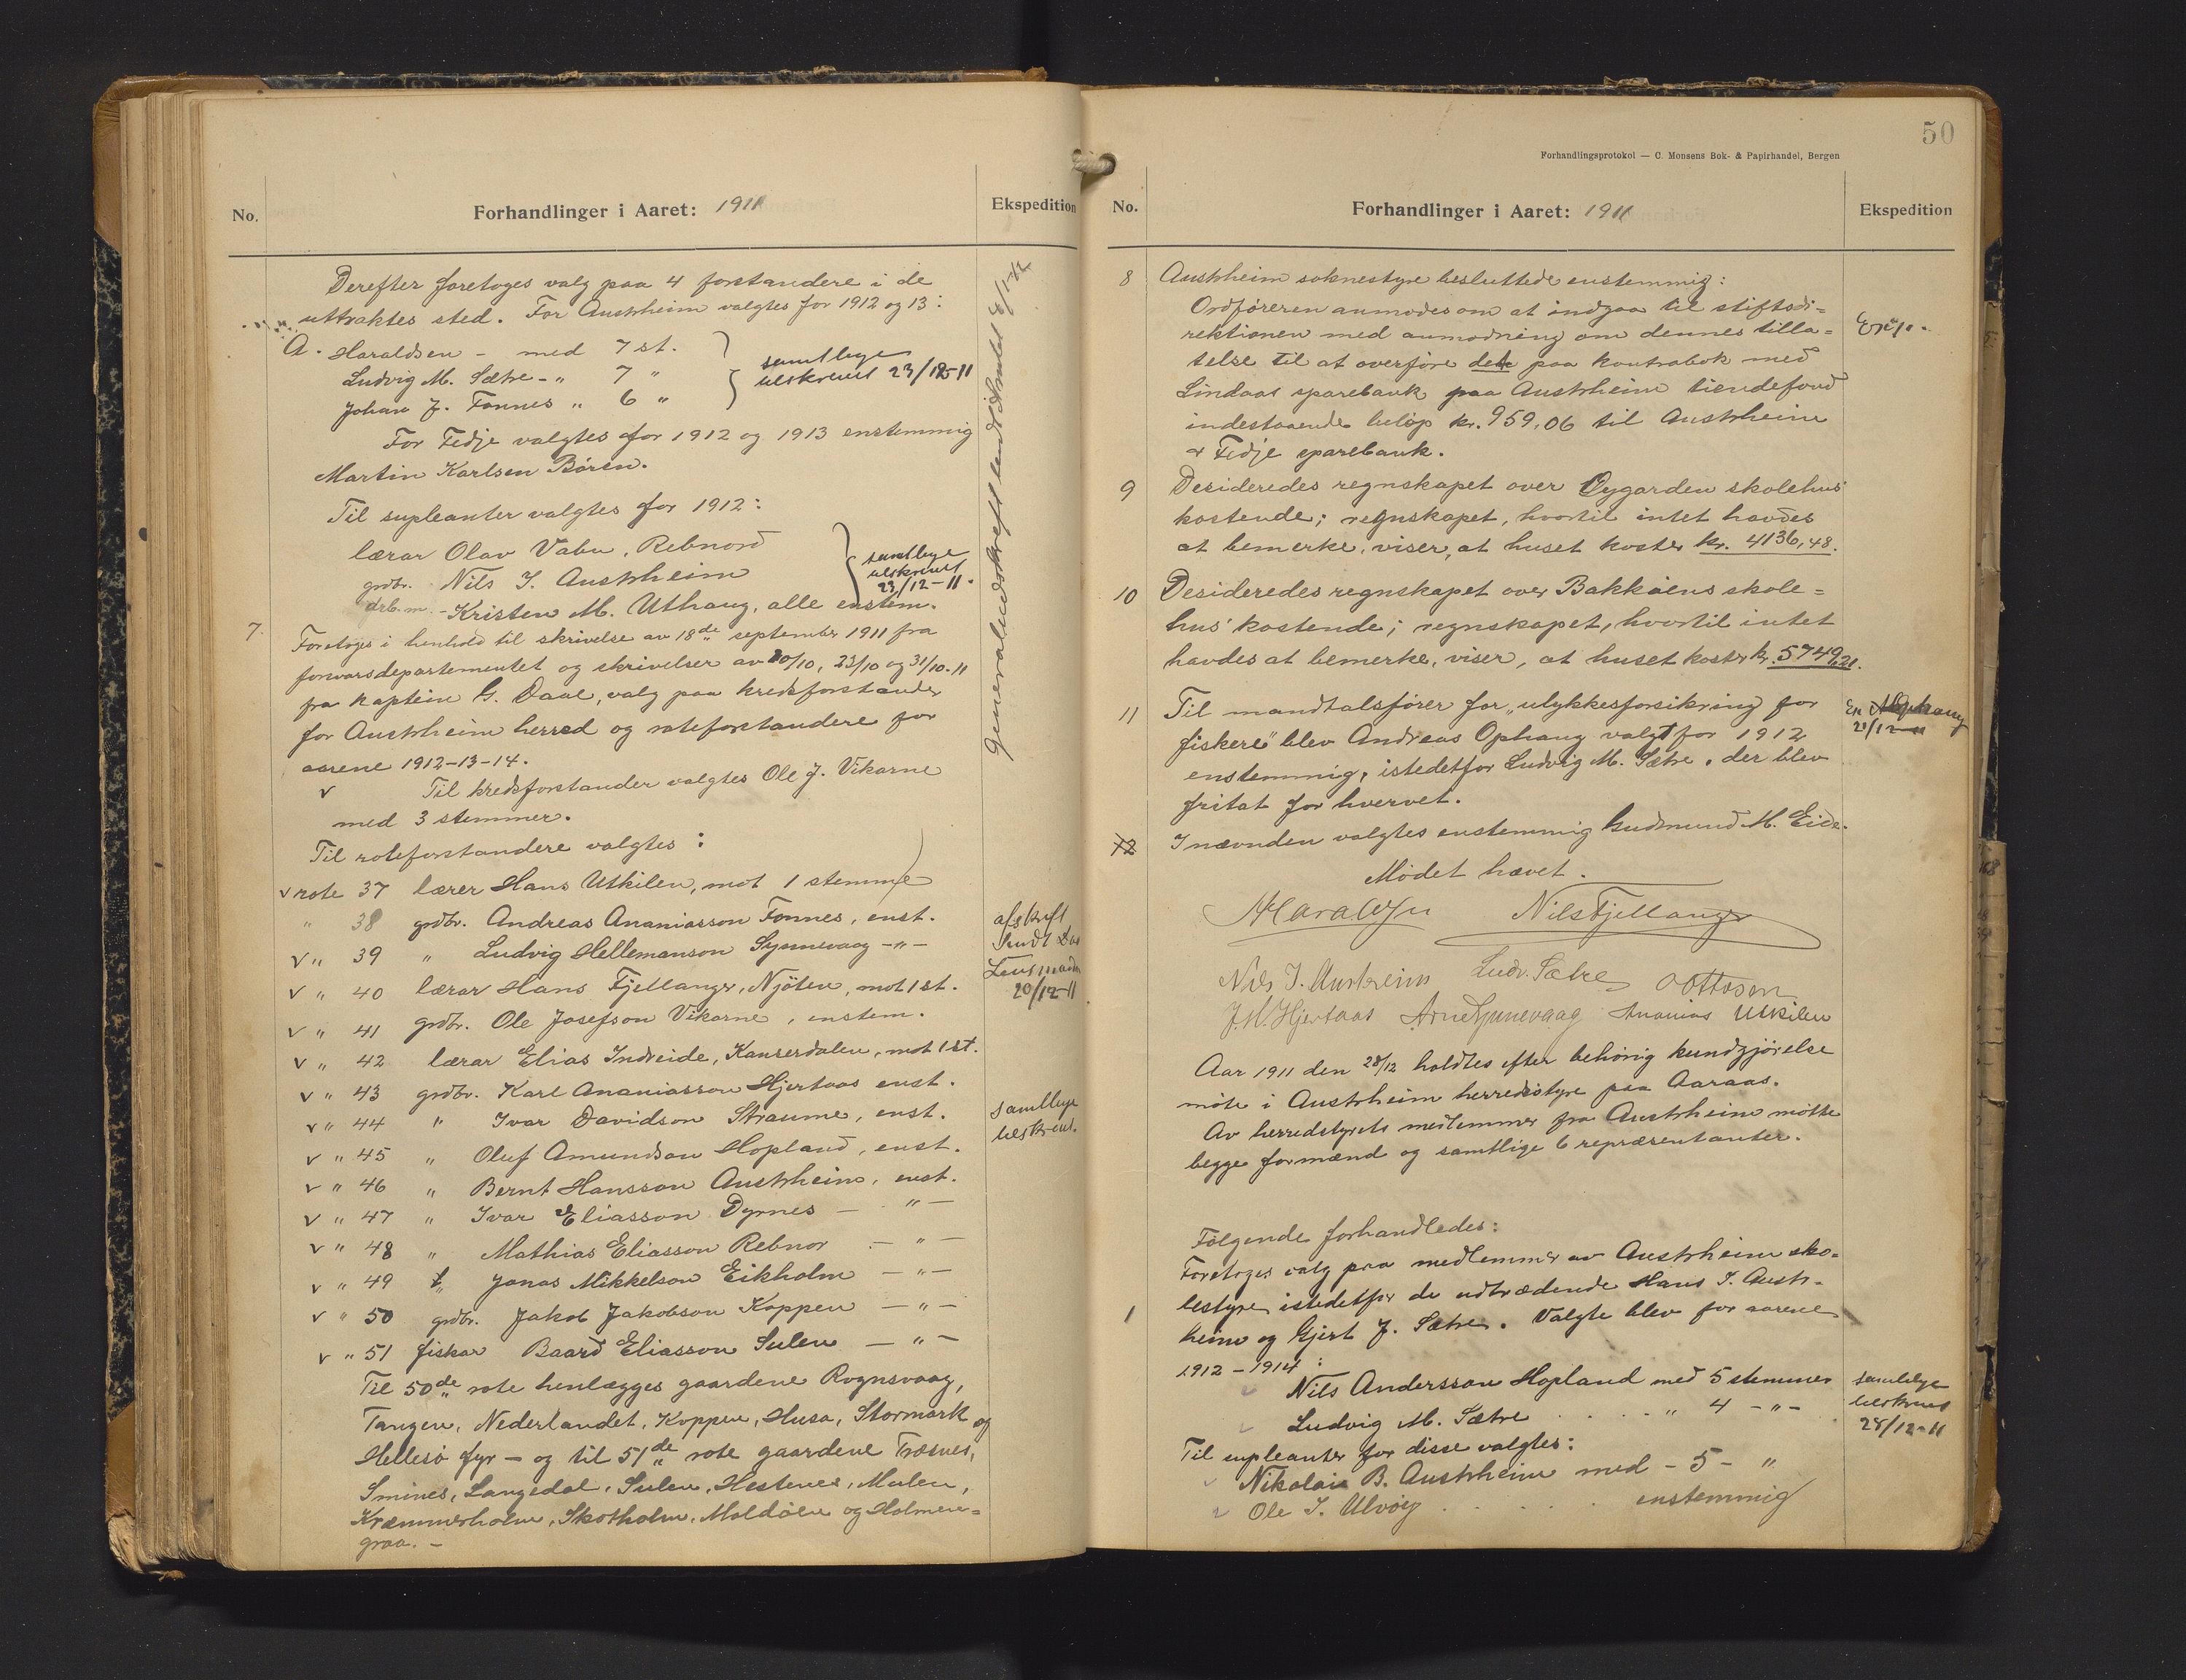 No.
Forhandlinger i Aaret: 1911
Ekspedition
Derefter foretoges valg paa 4 forstandere i de
uttraktes sted. For Austrheim valgtes for 1912 og 13:
A. Haraldsen - med 7 st.
Ludvig M. Sætre - " 7 "
Johan J. Fonnes " 6 "
samtlige
utskrevet 23/12-11
For Fedje valgtes for 1912 og 1913 enstemmig
Martin Karlsen Børen.
Til supleanter valgtes for 1912:
lærar Olav Vabu, Rebnord
grdbr. Nils I. Austrheim
arb.m. - Kristen M. Uthaug, alle enstem.
samtlige
utskrevet
23/12-11.
7. Foretoges i henhold til skrivelse av 18de september 1911 fra
forsvarsdepartementet og skrivelser av 20/10, 23/10 og 31/10-11
fra kaptein G. Daae, valg paa kredsforstander
for Austrheim herred og roteforstandere for
aarene 1912-13-14.
v Til kredsforstander valgtes Ole J. Vikarne
med 3 stemmer.
Til roteforstandere valgtes:
v rote 37 lærer Hans Utkilen, mot 1 stemme
" 38 grdbr. Andreas Ananiasson Fonnes, enst.
v " 39 " Ludvig Hellemanson Synnevaag -"-
v " 40 lærar Hans Fjellanger, Njøten, mot 1 st.
v " 41 grdbr. Ole Josefson Vikarne, enstem.
v " 42 lærar Elias Indreide, Kanserdalen, mot 1 st.
v " 43 grdbr. Karl Ananiasson Hjertaas enst.
v " 44 " Ivar Davidson Straume, enst.
v " 45 " Oluf Amundson Hopland, enst.
v " 46 " Bernt Hansson Austrheim, enst.
v " 47 " Ivar Eliasson Dyrnes - " -
v " 48 " Mathias Eliasson Rebnor - " -
v " 49 Jonas Mikkelson Eikholm - " -
v " 50 grdbr. Jakob Jakobson Koppen - " -
v " 51 fiskar Baard Eliasson Sulen - " -
Til 50de rote henlægges gaardene Rognsvaag,
Tangen, Nederlandet, Koppen, Husa, Stormark og
Hellesø fyr - og til 51de rote gaardene Træsnes,
Smines, Langedal, Sulen, Hestenes, Mulen,
Kræmmerholm, Skotholm, Moldøen og Holmen=
graa. -
afskrift
sendt
Lensmand
20/12-11
samtlige
utskrevet.
50
Forhandlingsprotokol — C. Monsens Bok- & Papirhandel, Bergen
No.
Forhandlinger i Aaret: 1911
Ekspedition
8 Austrheim soknestyre besluttede enstemmig:
Ordføreren anmodes om at indgaa til stiftsdi=
rektionen med anmodning om dennes tilla=
telse til at overføre det paa kontrabok med
Lindaas sparebank paa Austrheim tiendefond
indestaaende beløp kr. 959,06 til Austrheim
& Fedje sparebank.
9 Desideredes regnskapet over Øygarden skolehus'
kostende; regnskapet, hvortil intet havdes
at bemerke, viser, at huset koster kr. 4136,48.
10 Desideredes regnskapet over Bakkøens skole=
hus' kostende; regnskapet, hvortil intet
havdes at bemerke, viser, at huset koster kr. 5749,21.
11 Til mandtalsfører for „ulykkesforsikring for
fiskere" blev Andreas Ophaug valgt for 1912
enstemmig, istedetfor Ludvig M. Sætre, der blev
fritat for hvervet.
12 I nævnden valgtes enstemmig Gudmund M. Eide.
Mødet hævet.
Exp.
20/12-11
AHaraldsen Nils Fjellanger
Nils I. Austreim Ludv. Sætre OOttosen
J.M. Hjertaas Arne Synnevaag Ananias Utkilen
Aar 1911 den 28/12 holdtes efter behørig kundgjørelse
møte i Austrheim herredsstyre paa Aaraas.
Av herredstyrets medlemmer fra Austrheim møtte
begge formænd og samtlige 6 repræsentanter.
Følgende forhandledes:
Foretoges valg paa medlemmer av Austrheim sko=
1 lestyre istedetfor de udtrædende Hans I. Austr=
heim og Gjert J. Sætre. Valgte blev for aarene
1912-1914:
Nils Andersson Hopland med 5 stemmer
Ludvig M. Sætre " 4 - " -
Til supleanter for disse valgtes:
Nikolai B. Austrheim med - 5 - "
Ole I. Ulvøy enstemmig
samtlige
utskrevet
28/12-11